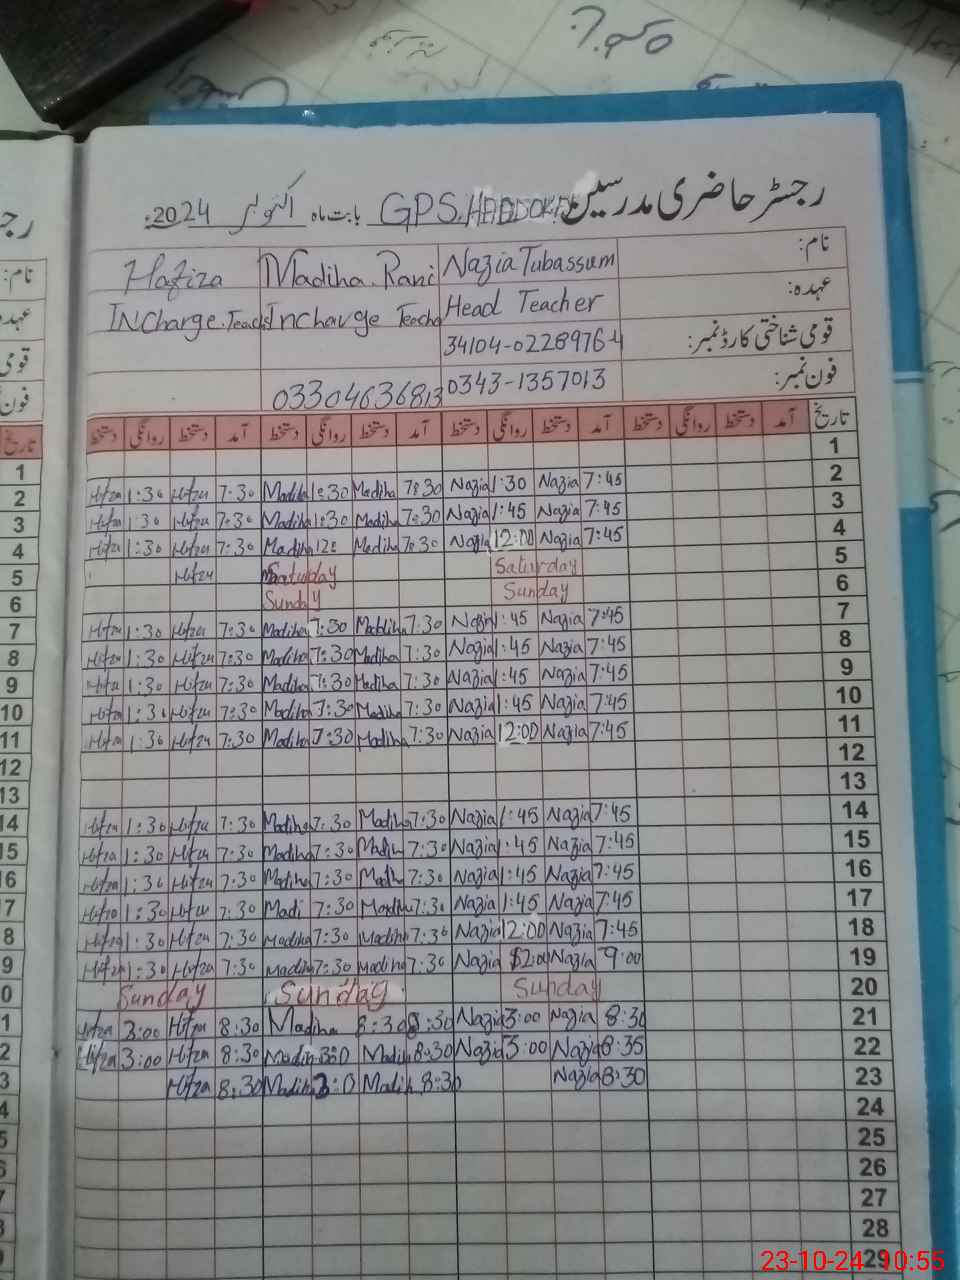 رجسٹر حاضری مدرسین GPS. بابت ماہ اکتوبر 2024ء
نام: Nazia Tubassum Madiha. Rani Hafiza
عہدہ: Head Teacher Incharge Teache INCharge. Teach
قومی شناختی کارڈ نمبر: 34104-0228976-4
فون نمبر: 0343-1357013 03304636813
تاریخ آمد دستخط روانگی دستخط آمد دستخط روانگی دستخط آمد دستخط روانگی دستخط آمد دستخط روانگی دستخط
1
Hifza 1:30 Hifza 7:30 Madiha 1:30 Madiha 7:30 Nazia 1:30 Nazia 7:45 2
Hifza 1:30 Hifza 7:30 Madiha 1:30 Madiha 7:30 Nazia 1:45 Nazia 7:45 3
Hifza 1:30 Hifza 7:30 Madiha 12: Madiha 7:30 Nazia 12:00 Nazia 7:45 4
Hifza Saturday Saturday 5
Sunday Sunday 6
Hifza 1:30 Hifza 7:30 Madiha 7:30 Madiha 7:30 Nazia 1:45 Nazia 7:45 7
Hifza 1:30 Hifza 7:30 Madiha 7:30 Madiha 7:30 Nazia 1:45 Nazia 7:45 8
Hifza 1:30 Hifza 7:30 Madiha 7:30 Madiha 7:30 Nazia 1:45 Nazia 7:45 9
Hifza 1:30 Hifza 7:30 Madiha 7:30 Madiha 7:30 Nazia 1:45 Nazia 7:45 10
Hifza 1:30 Hifza 7:30 Madiha 7:30 Madiha 7:30 Nazia 12:00 Nazia 7:45 11
12
13
Hifza 1:30 Hifza 7:30 Madiha 7:30 Madiha 7:30 Nazia 1:45 Nazia 7:45 14
Hifza 1:30 Hifza 7:30 Madiha 7:30 Madiha 7:30 Nazia 1:45 Nazia 7:45 15
Hifza 1:30 Hifza 7:30 Madiha 7:30 Madih 7:30 Nazia 1:45 Nazia 7:45 16
Hifza 1:30 Hifza 7:30 Madi 7:30 Madiha 7:30 Nazia 1:45 Nazia 7:45 17
Hifza 1:30 Hifza 7:30 Madiha 7:30 Madiha 7:30 Nazia 12:00 Nazia 7:45 18
Hifza 1:30 Hifza 7:30 Madiha 7:30 Madiha 7:30 Nazia 12:00 Nazia 9:00 19
Sunday Sunday Sunday 20
Hifza 3:00 Hifza 8:30 Madiha 8:30 8:30 Nazia 3:00 Nazia 8:30 21
Hifza 3:00 Hifza 8:30 Madih 3:0 Madih 8:30 Nazia 3:00 Nazia 8:35 22
Hifza 8:30 Madiha 3:0 Madih 8:30 Nazia 8:30 23
24
25
26
27
28
29
23-10-24 10:55